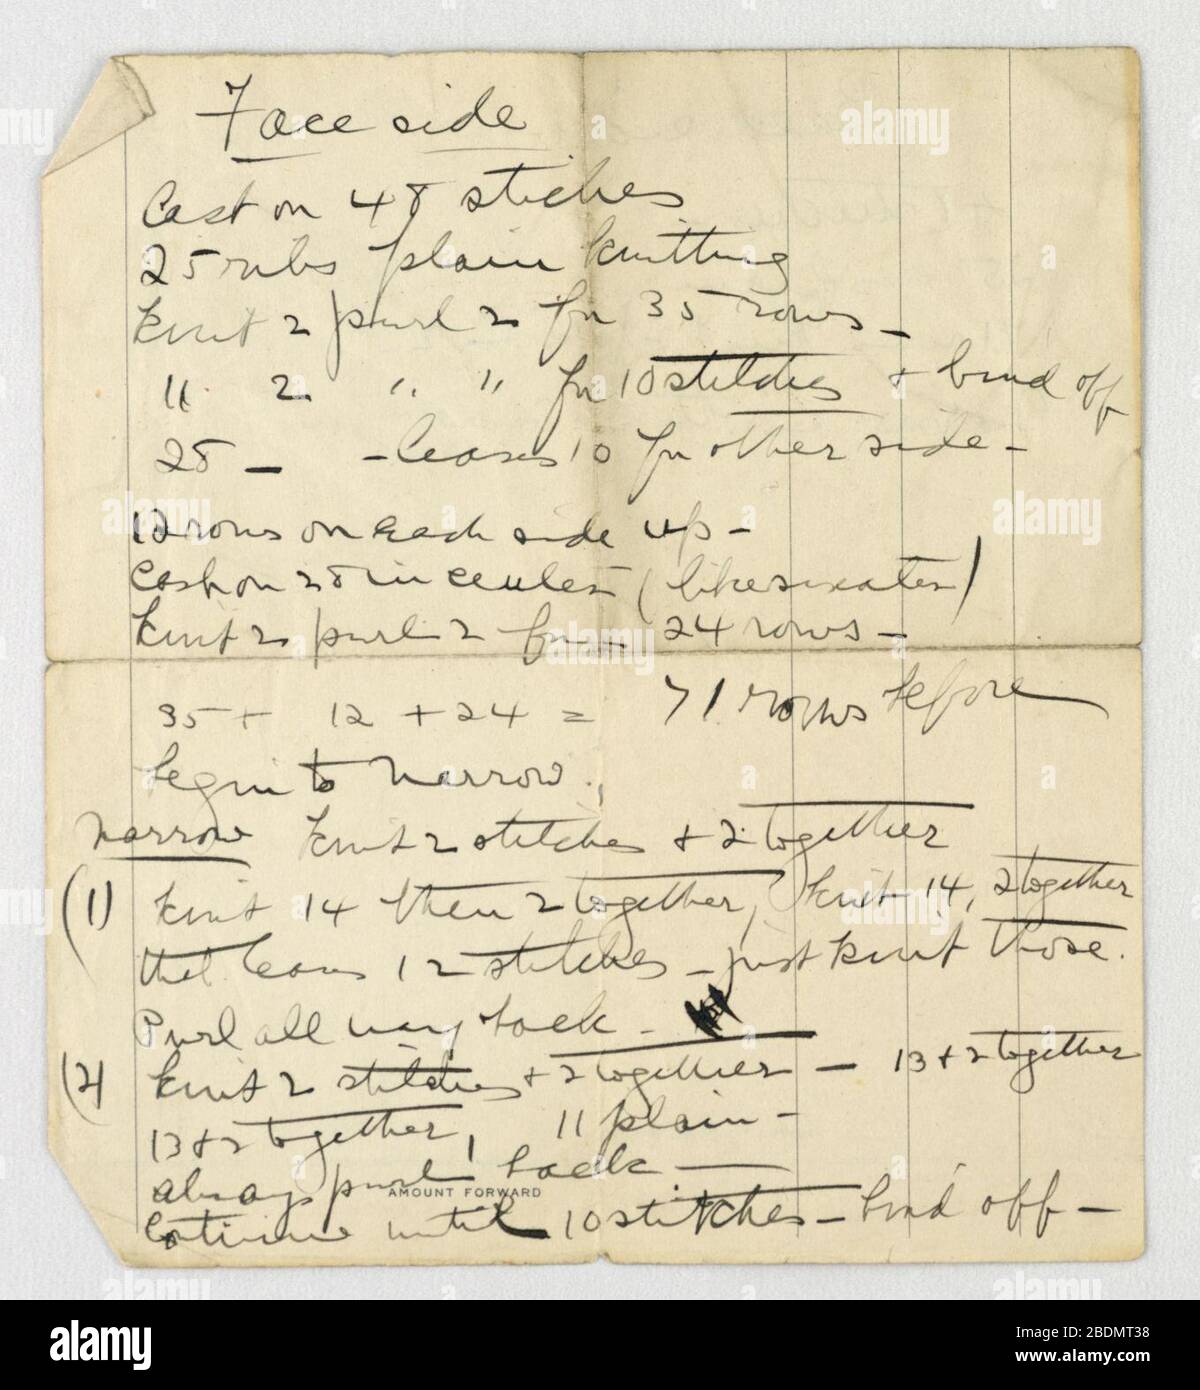 Face side
Cast on 48 stiches
25 ribs plain knitting
Knit 2 purl 2 for 35 rows -
" 2 " " for 10 stitches & bind off
28 - - leaves 10 for other side -
12 rows on each side up -
Cast on 28 in center (like
Knit 2 purl 2 for - 24 rows -
35 + 12 + 24 = 71 rows before
begin to narrow.
Narrow Knit 2 stitches & 2 together
(1) Knit 14 then 2 together, Knit 14, 2 together
that leaves 12 stitches - just knit those.
Purl all way back -
(2) Knit 2 stitches & 2 together - 13 & 2 together
13 & 2 together, 11 plain -
always purl back -
AMOUNT FORWARD
Continue until 10 stitches - bind off -
alamy
Image ID: 2BDMT38
www.alamy.com